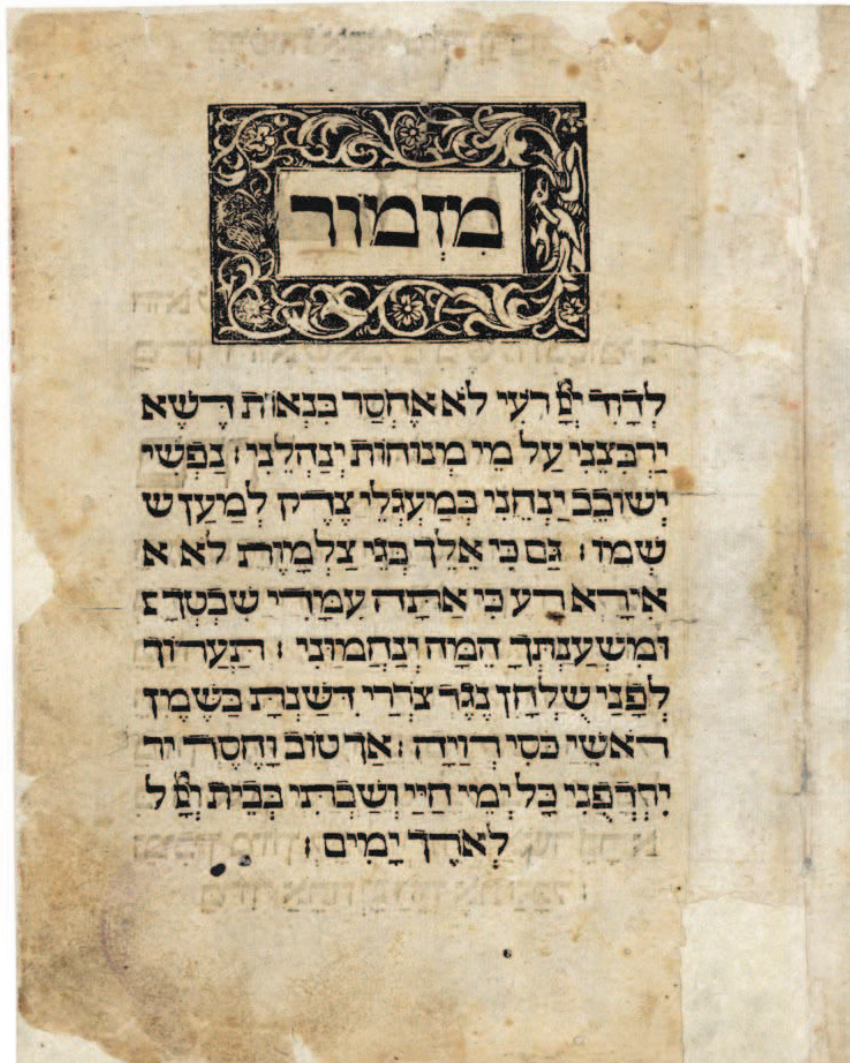 מִזְמוֹר
לְדָוִד יְיָ רֹעִי לֹא אֶחְסַר בִּנְאוֹת דֶּשֶׁא
יַרְבִּצֵנִי עַל מֵי מְנוּחוֹת יְנַהֲלֵנִי : נַפְשִׁי
יְשׁוֹבֵב יַנְחֵנִי בְּמַעְגְּלֵי צֶדֶק לְמַעַן ש
שְׁמוֹ : גַּם כִּי אֵלֵךְ בְּגֵי צַלְמָוֶת לֹא א
אִירָא רָע כִּי אַתָּה עִמָּדִי שִׁבְטְךָ
וּמִשְׁעַנְתְּךָ הֵמָּה יְנַחֲמוּנִי : תַּעֲרוֹךְ
לְפָנַי שֻׁלְחָן נֶגֶד צֹרְרַי דִּשַּׁנְתָּ בַּשֶּׁמֶן
רֹאשִׁי כֹּסִי רְוָיָה : אַךְ טוֹב וָחֶסֶד יר
יִרְדְּפֻנִי כָּל יְמֵי חַיַּי וְשַׁבְתִּי בְּבֵית יְיָ ל
לְאֹרֶךְ יָמִים :